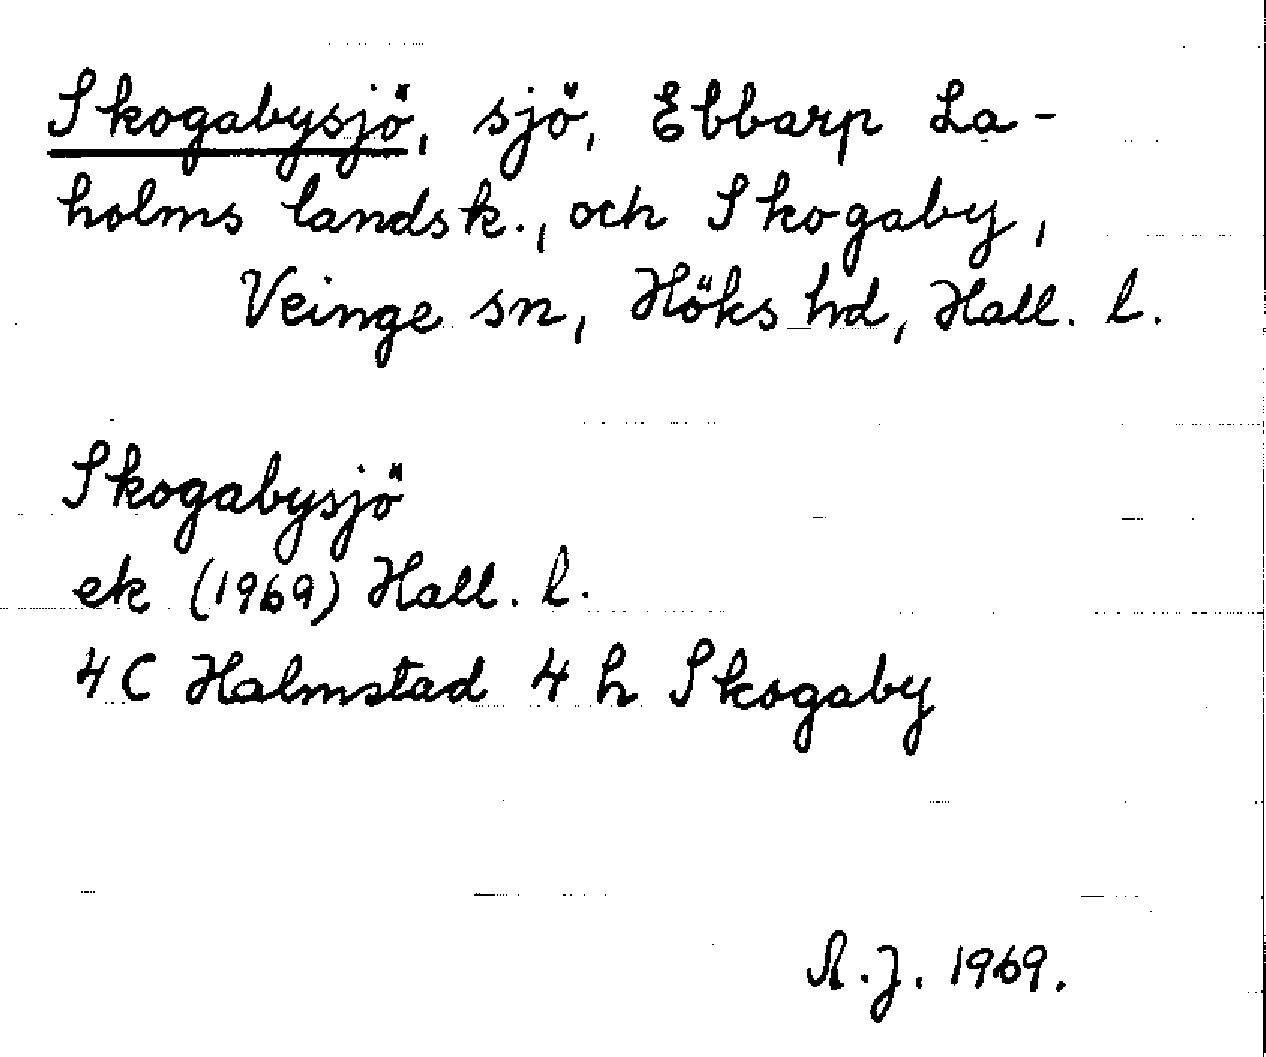 Skogabysjö, sjö, Ebbarp La-
holms landsk., och Skogaby,
Veinge sn, Höks hd, Hall. l.
Skogabysjö
ek (1969) Hall. l.
4C Halmstad 4 h Skogaby
A.J. 1969.